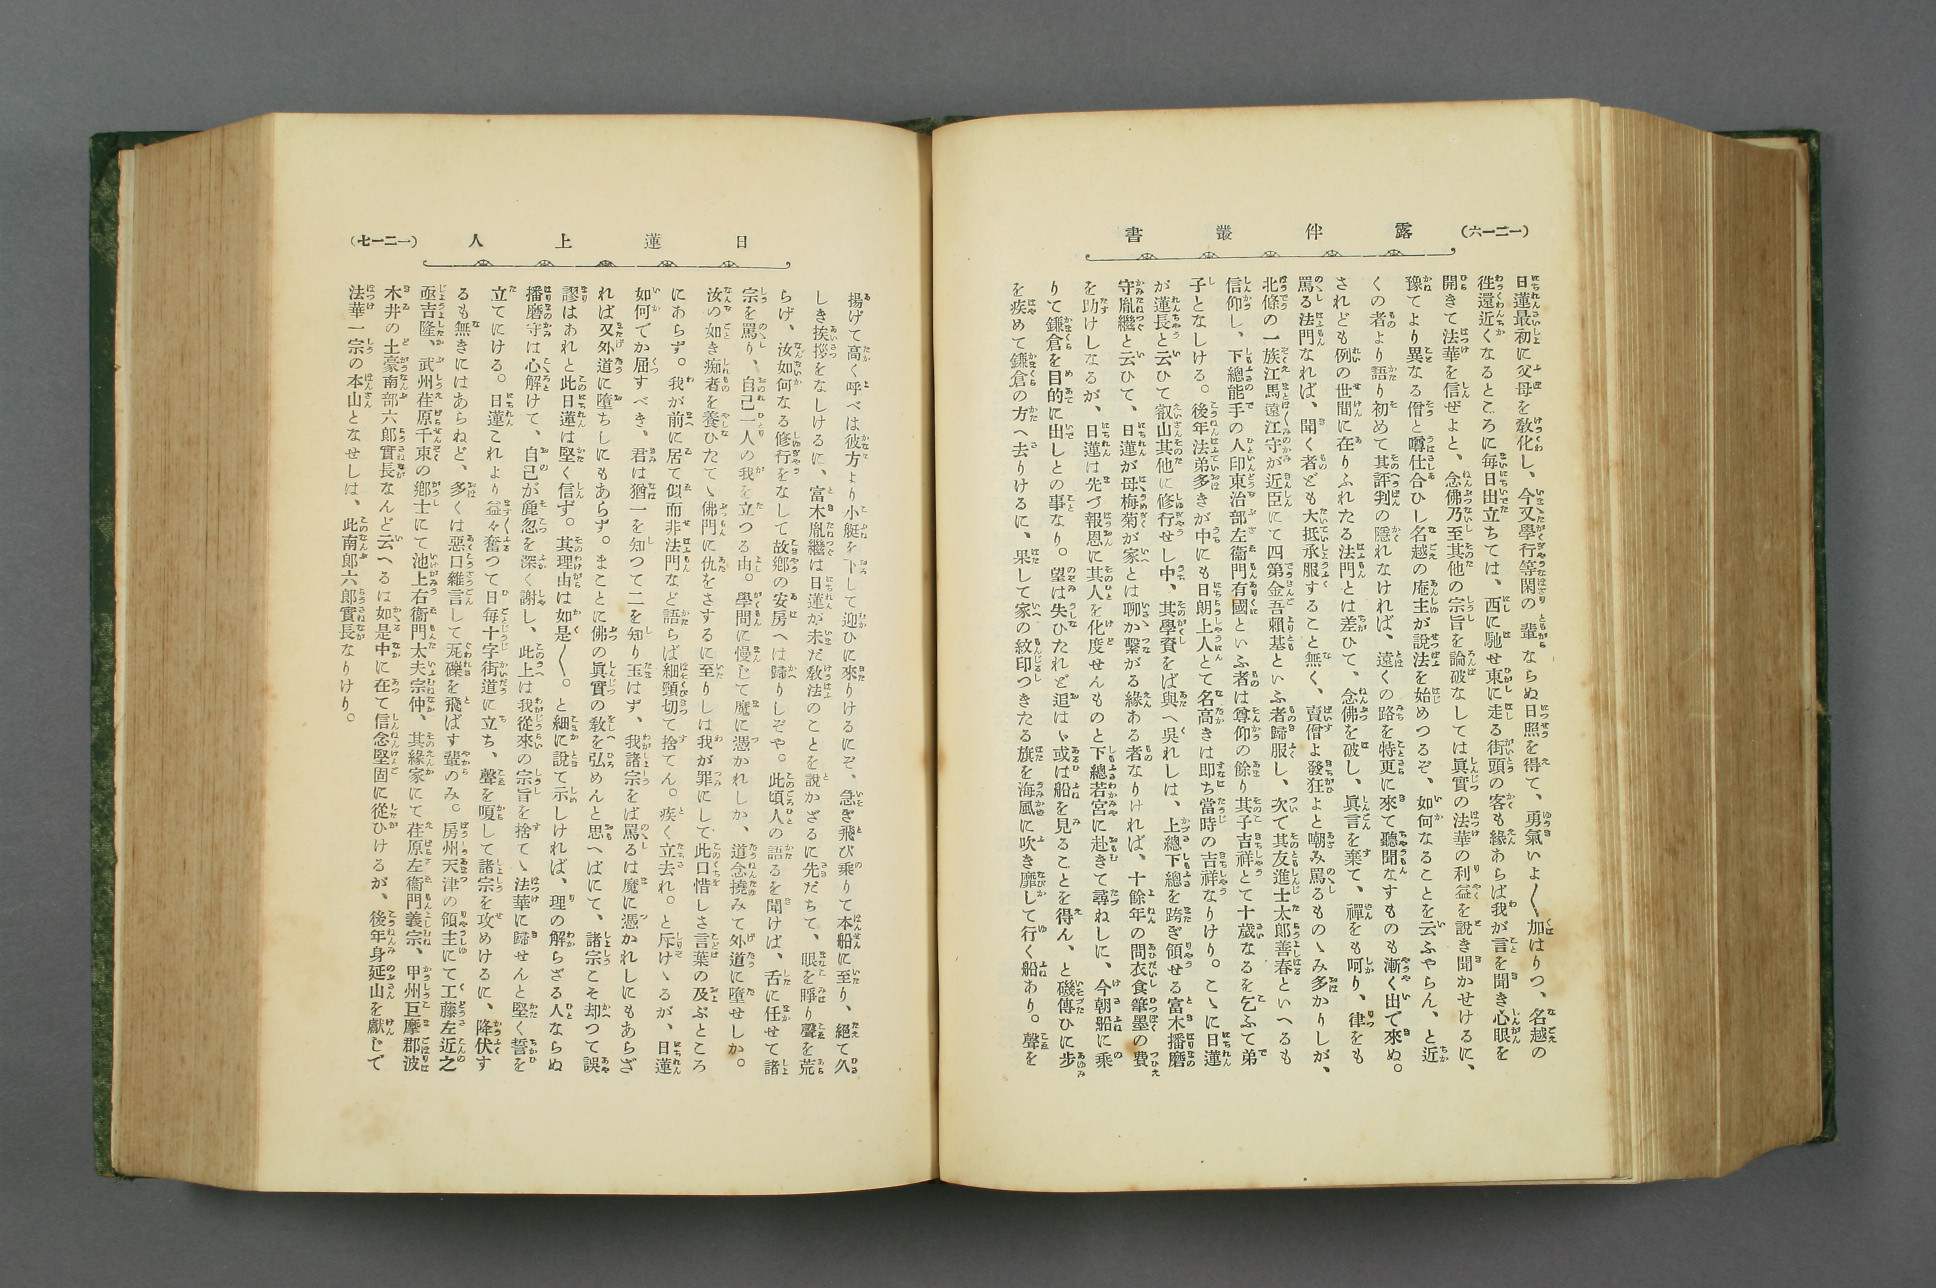 (一二一六)
露伴叢書
日蓮最初に父母を教化し、今又學行等閑の輩ならぬ日照を得て、勇氣いよ〳〵加はりつ、名越の
徃還近くなるところに毎日出立ちては、西に馳せ東に走る街頭の客も緣あらば我が言を聞き心眼を
開きて法華を信ぜよと、念佛乃至其他の宗旨を論破なしては眞實の法華の利益を説き聞かせけるに、
豫てより異なる僧と噂仕合ひし名越の庵主が説法を始めつるぞ、如何なることを云ふやらん、と近
くの者より語り初めて其評判の隱れなければ、遠くの路を特更に來て聽聞なすものも漸く出で來ぬ。
されども例の世間に在りふれたる法門とは差ひて、念佛を破し、眞言を棄て、禪をも呵り、律をも
罵る法門なれば、聞く者ども大抵承服すること無く、賣僧よ發狂よと嘲み罵るものゝみ多かりしが、
北條の一族江馬遠江守が近臣にて四第金吾賴基といふ者歸服し、次て其友進士太郎善春といへるも
信仰し、下總能手の人印東治部左衞門有國といふ者は尊仰の餘り其子吉祥とて十歳なるを乞ふて弟
子となしける。後年法弟多きが中にも日朗上人とて名高きは即ち當時の吉祥なりけり。こゝに日蓮
が蓮長と云ひて叡山其他に修行せし中、其學資をば與へ呉れしは、上總下總を跨ぎ領せる富木播磨
守胤繼と云ひて、日蓮が母梅菊が家とは聊か繫がる緣ある者なりければ、十餘年の間衣食筆墨の費
を助けしなるが、日蓮は先づ報恩に其人を化度せんものと下總若宮に赴きて尋ねしに、今朝船に乘
りて鎌倉を目的に出しとの事なり。望は失ひたれど追はゞ或は船を見ることを得ん、と磯傳ひに步
を疾めて鎌倉の方へ去りけるに、果して家の紋印つきたる旗を海風に吹き靡かして行く船あり。聲を
日蓮上人
(一二一七)
揚げて高く呼べは彼方より小艇を下して迎ひに來りけるにぞ、急ぎ飛び乘りて本船に至り、絕て久
しき挨拶をなしけるに、富木胤繼は日蓮が未だ敎法のことを説かざるに先だちて、眼を睜り聲を荒
らげ、汝如何なる修行をなして故鄕の安房へは歸りしぞや。此頃人の語るを聞けば、舌に任せて諸
宗を罵り、自己一人の我を立つる由。學問に慢じて魔に憑かれしか、道念撓みて外道に墮せしか。
汝の如き痴者を養ひたてゝ佛門に仇をさするに至りしは我が罪にして此口惜しさ言葉の及ぶところ
にあらず。我が前に居て似而非法門など語らば細頸切て捨てん。疾く立去れ。と斥けゝるが、日蓮
如何でか屈すべき、君は猶一を知つて二を知り玉はず、我諸宗をば罵るは魔に憑かれしにもあらざ
れば又外道に墮ちしにもあらず。まことに佛の眞實の敎を弘めんと思へばにて、諸宗こそ却つて誤
謬はあれと此日蓮は堅く信ず。其理由は如是〳〵。と細に説て示しければ、理の解らざる人ならぬ
播磨守は心解けて、自己が麁忽を深く謝し、此上は我從來の宗旨を捨てゝ法華に歸せんと堅く誓を
立てにける。日蓮これより益々奮つて日毎十字街道に立ち、聲を嗄して諸宗を攻めけるに、降伏す
るも無きにはあらねど、多くは惡口雜言して瓦礫を飛ばす輩のみ。房州天津の領主にて工藤左近之
亟吉隆、武州荏原千束の鄕士にて池上右衞門太夫宗仲、其緣家にて荏原左衞門義宗、甲州巨摩郡波
木井の土豪南部六郎實長なんど云へるは如是中に在て信念堅固に從ひけるが、後年身延山を獻じて
法華一宗の本山となせしは、此南郎六郎實長なりけり。